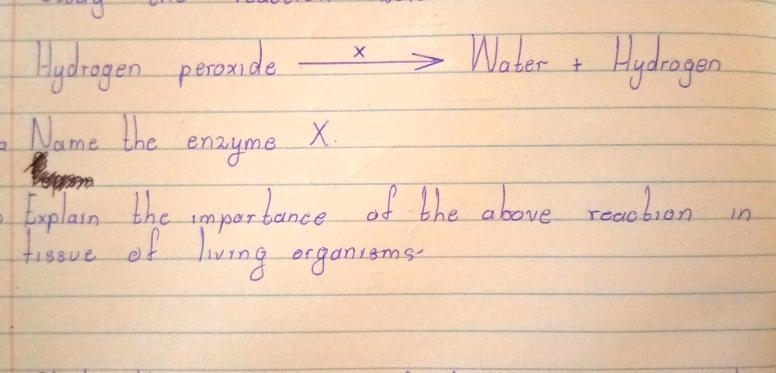 the reaction
Hydrogen peroxide —x→ Water + Hydrogen
Name the enzyme X.
Explain the importance of the above reaction in
tissue of living organisms.